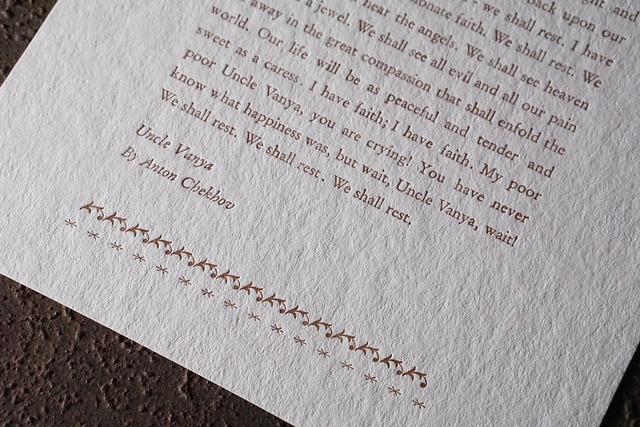 back upon our
we shall rest. I have
passionate faith. We shall rest. We
hear the angels. We shall see heaven
a jewel. We shall see all evil and all our pain
away in the great compassion that shall enfold the
world. Our life will be as peaceful and tender and
sweet as a caress. I have faith; I have faith. My poor
poor Uncle Vanya, you are crying! You have never
know what happiness was, but wait, Uncle Vanya, wait!
We shall rest. We shall rest. We shall rest.
Uncle Vanya
By Anton Chekhov